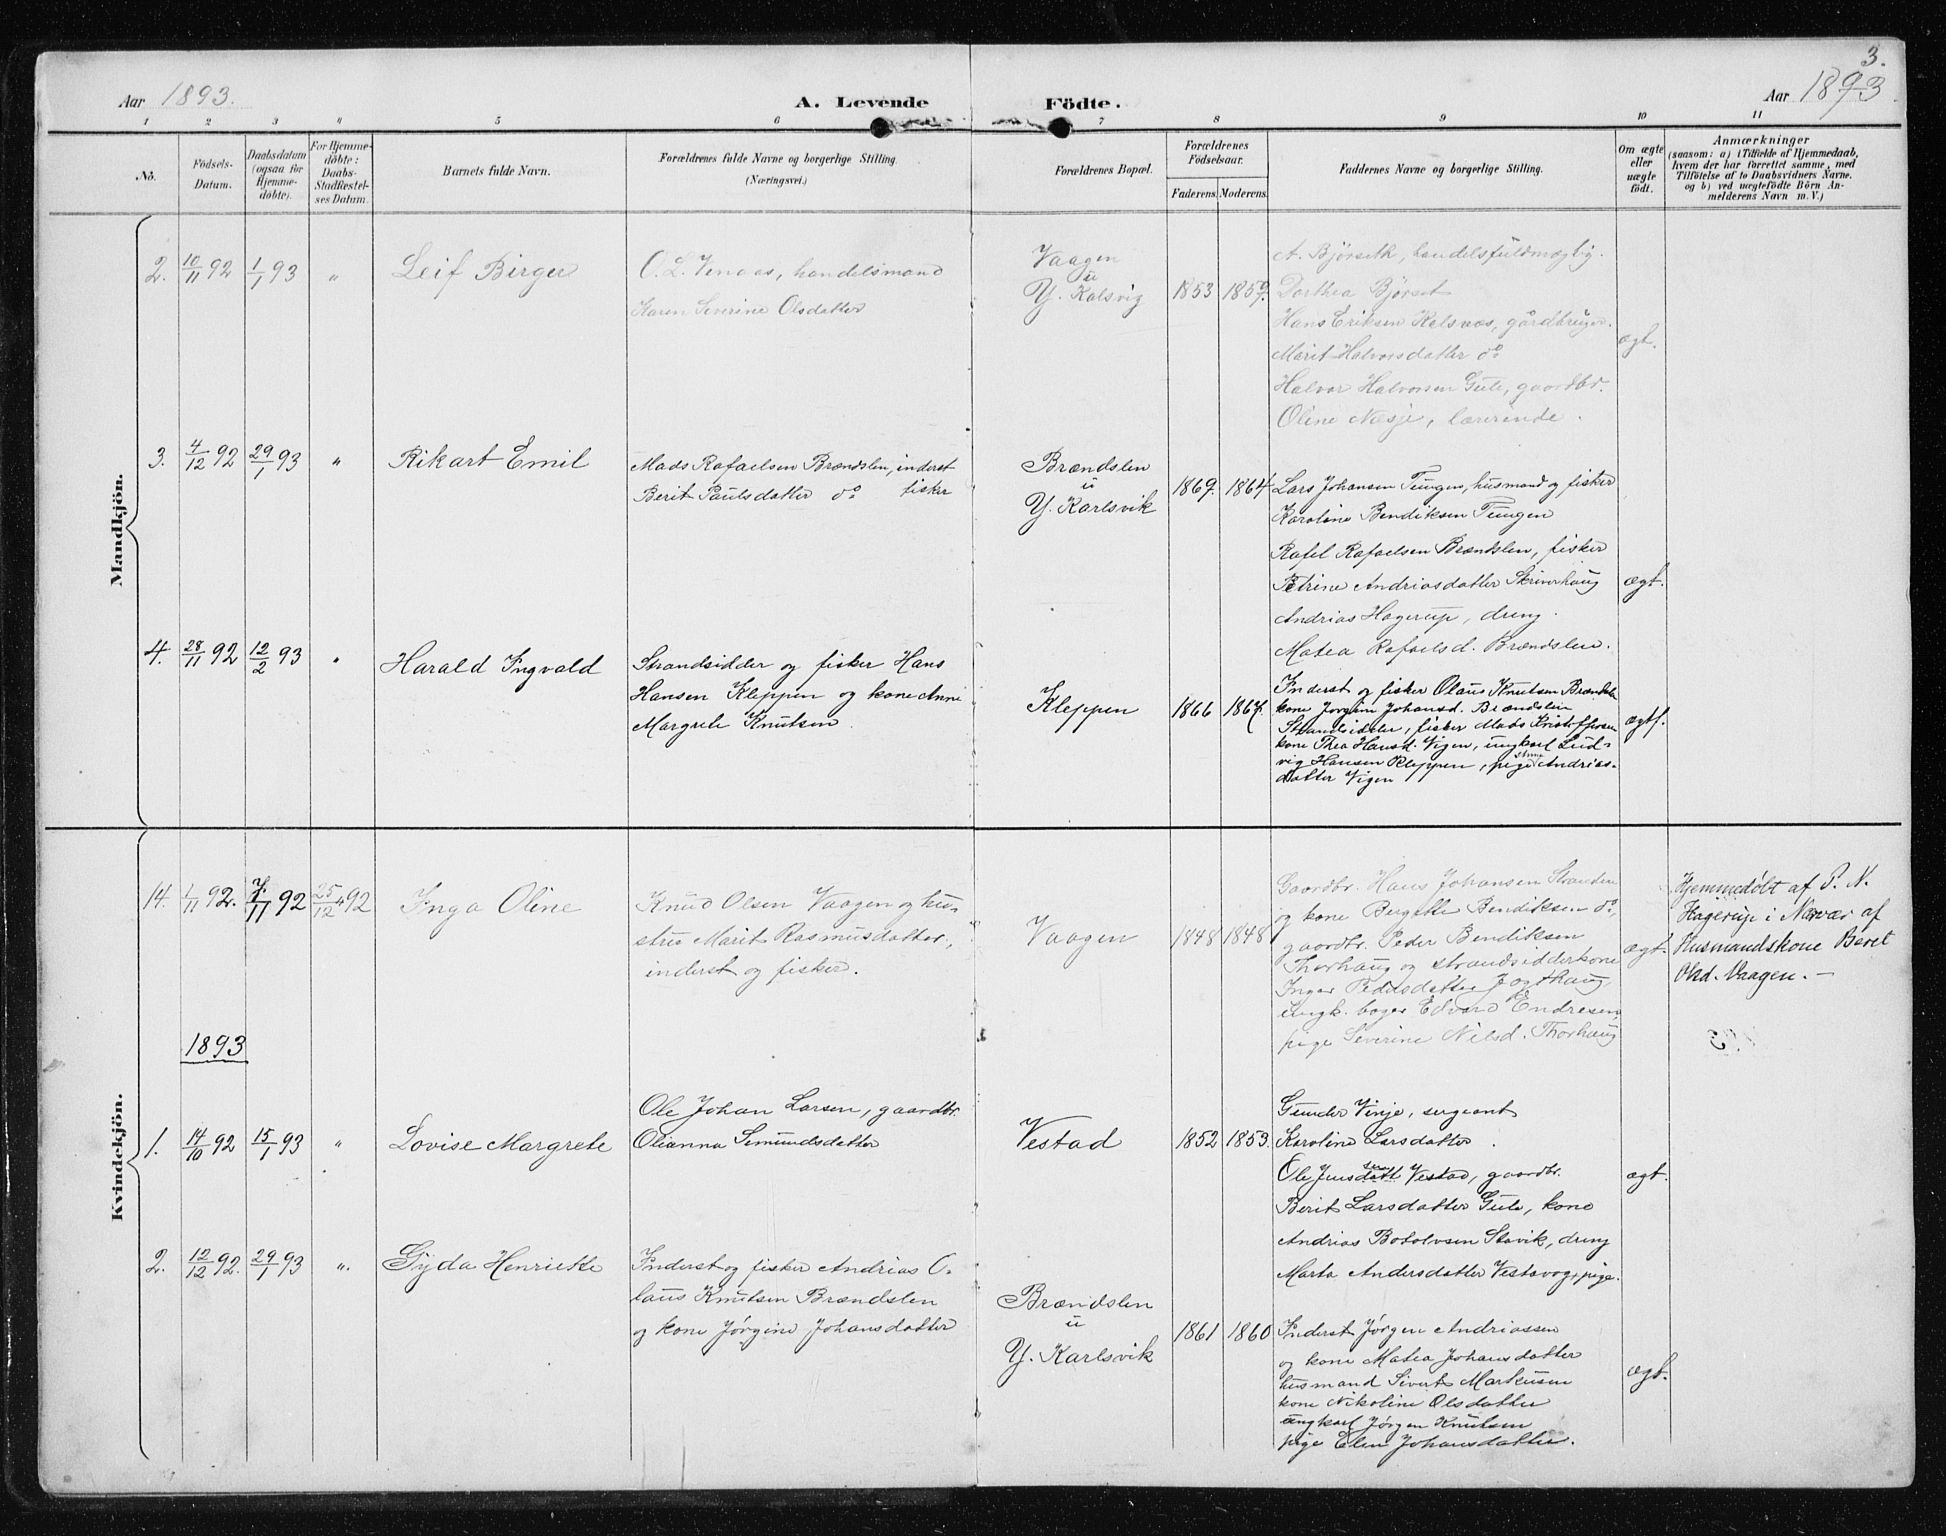 3.
Aar 1893. A. Levende Födte. Aar 1893
1 2 3 4 5 6 7 8 9 10 11
No.
Födsels-Datum.
Daabsdatum (ogsaa for Hjemme-döbte).
For Hjemme-döbte: Daabs-Stadfæstel-ses Datum.
Barnets fulde Navn.
Forældrenes fulde Navne og borgerlige Stilling.
(Næringsvei.)
Forældrenes Bopæl.
Forældrenes Födselsaar.
Faderens. Moderens.
Faddernes Navne og borgerlige Stilling.
Om ægte eller uægte födt.
Anmærkninger
(saasom: a) i Tilfælde af Hjemmedaab,
hvem der har forrettet samme, med
Tilföielse af to Daabsvidners Navne,
og b) ved uægtefödte Börn An-
melderens Navn m. V.)
Mandkjön.
2. 10/11 92 1/1 93 " Leif Birger
O. L. Venaas, handelsmand
Karen Severine Olsdatter
Vaagen
u
Y. Kalsvig
1853 1859.
A. Bjørseth, handelsfuldmægtig.
Dorthea Bjørset
Hans Eriksen Kalsnes, gårdbruger.
Marit Halvorsdatter do
Halvor Halvorsen Gule, gaardbr.
Oline Næsje, lærerinde.
ægt.
3. 4/12 92 29/1 93 " Rikart Emil
Mads Rafaelsen Brændslen, inderst
Berit Paulsdatter do fisker
Brændslen
u
Y. Karlsvik
1869. 1864
Lars Johansen Tungen, husmand og fisker
Karoline Bendiksen Tungen
Rafel Rafaelsen Brændslen, fisker
Petrine Andriasdatter Skriverhaug
Andrias Hagerup, dreng.
Matea Rafaelsd. Brændslen.
ægt.
4. 28/11 92 12/2 93 " Harald Ingvald
Strandsidder og fisker Hans
Hansen Kleppen og kone Anne
Margrete Knutsen.
Kleppen
1866 1867.
Inderst og fisker Olaus Knutsen Brændslen
kone Jørgine Johansd. Brændslen
Strandsidder, fisker Mads Kristoffersen
kone Thea Hansd. Vigen, ungkarl Lud-
vig Hansen Kleppen, pige Andrias-
datter Vigen
ægtf.
Kvindekjön.
14. 1/11 92. 7/11 92 25/12 92 Inga Oline
Knud Olsen Vaagen og hu-
stru Marit Rasmusdatter,
inderst og fisker.
Vaagen
1848 1848
Gaardbr. Hans Johansen Stranden
og kone Bergitte Bendiksen do,
gaardbr. Peder Bendiksen
Thorhaug og strandsidderkone
Inger Pedersdatter Jogthaug,
ungk. bager Edvard Endresen,
pige Severine Nilsd. Thorhaug
ægt.
Hjemmedøbt af P. N.
Hagerup i Nærvær af
Husmandskone Beret
Olsd. Vaagen. —
1893
1. 14/10 92 15/1 93 " Lovise Margrete
Ole Johan Larsen, gaardbr.
Olianna Semundsdatter
Vestad
1852 1853.
Gunder Vinje, sergeant
Karoline Larsdatter.
Ole Jensdatt sen Vestad, gaardbr.
Berit Larsdatter Gule, kone
Andrias Botolvsen Stavik, dreng
Marta Andersdatter Vestavog, pige.
ægt.
2. 12/12 92. 29/1 93 ". Gyda Henriette
Inderst og fisker Andrias O-
laus Knutsen Brændslen
og kone Jørgine Johansdatter
Brændslen
u
Y. Karlsvik
1861 1860
Inderst Jørgen Andriassen
og kone Matea Johansdatter
husmand Sivert Markusen
kone Nikoline Olsdatter
ungkarl Jørgen Knutsen
pige Elen Johansdatter.
ægt.